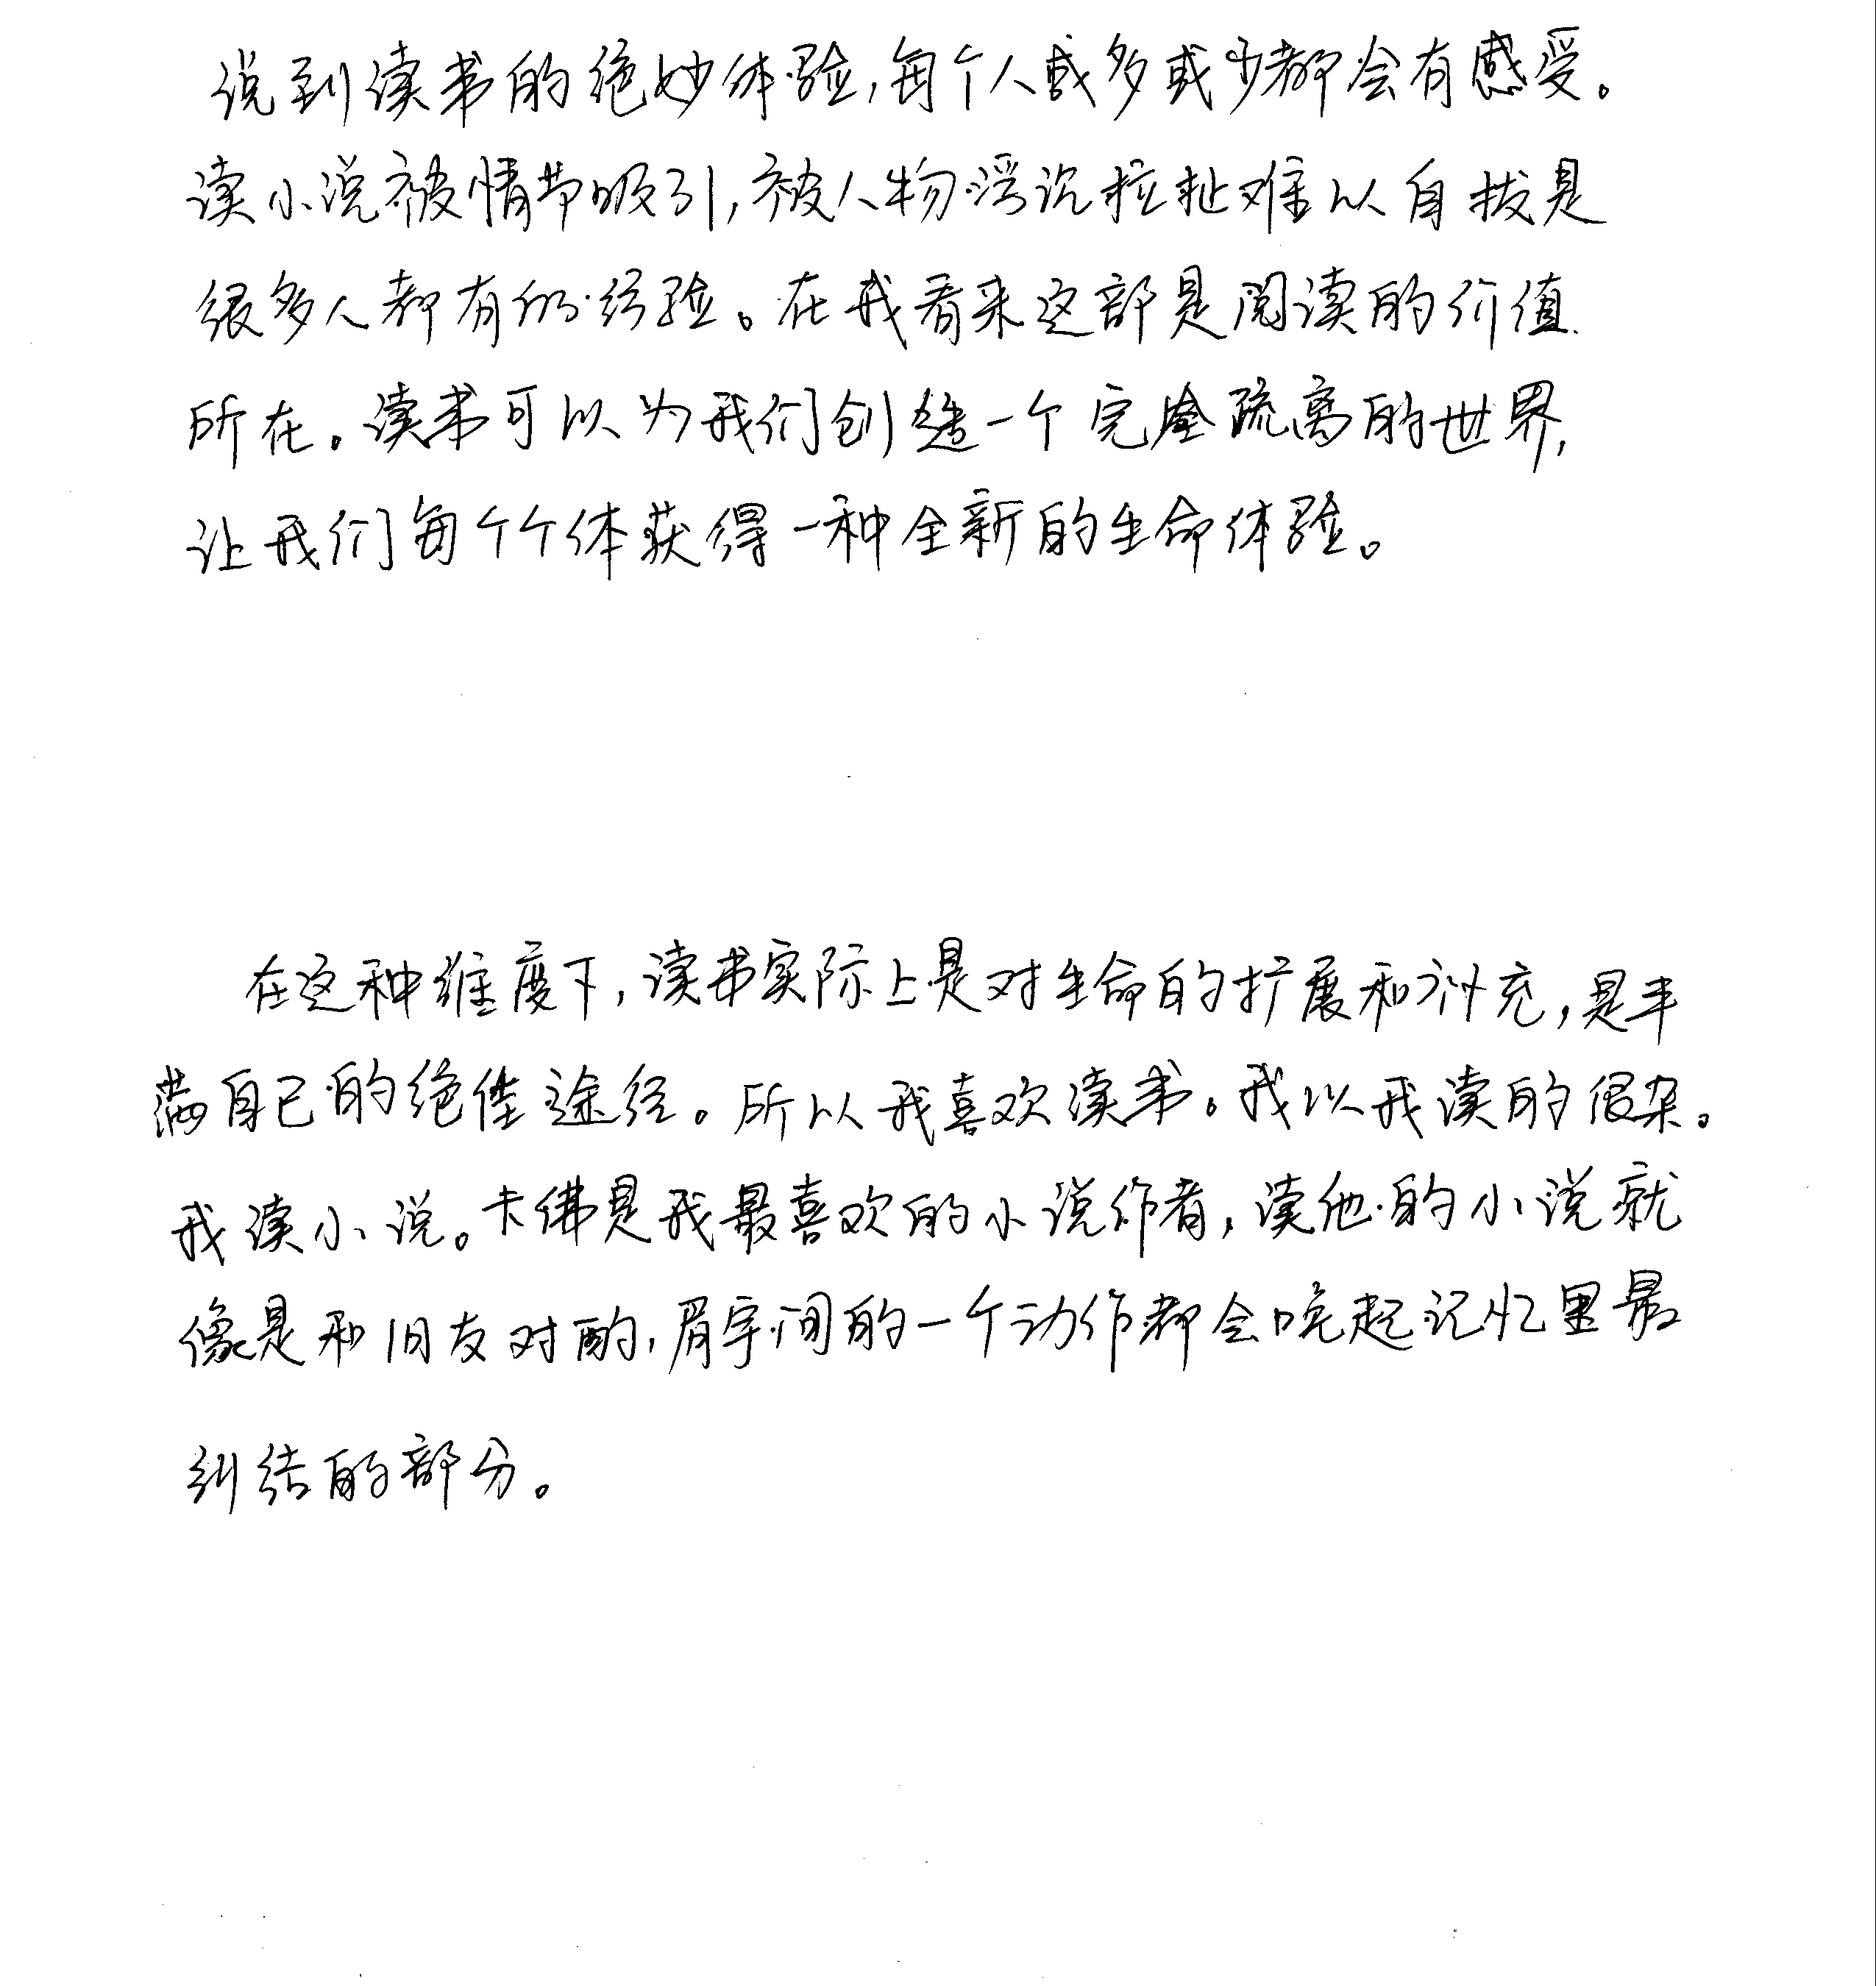 说到读书的绝妙体验,每个人或多或少都会有感受。
读小说被情节吸引,被人物浮沉拉扯难以自拔是
很多人都有的经验。在我看来这部是阅读的价值
所在。读书可以为我们创造一个完全疏离的世界,
让我们每个个体获得一种全新的生命体验。
在这种维度下,读书实际上是对生命的扩展和补充,是丰
满自己的绝佳途径。所以我喜欢读书。我以我读的很杂。
我读小说。卡佛是我最喜欢的小说作者,读他的小说就
像是和旧友对酌,眉宇间的一个动作都会唤起记忆里最
纠结的部分。